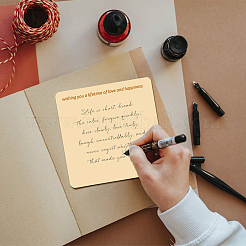 wishing you a lifetime of love and happiness
Life is short, break
the rules, forgive quickly,
kiss slowly, love truly,
laugh uncontrollably, and
never regret anything
That made you